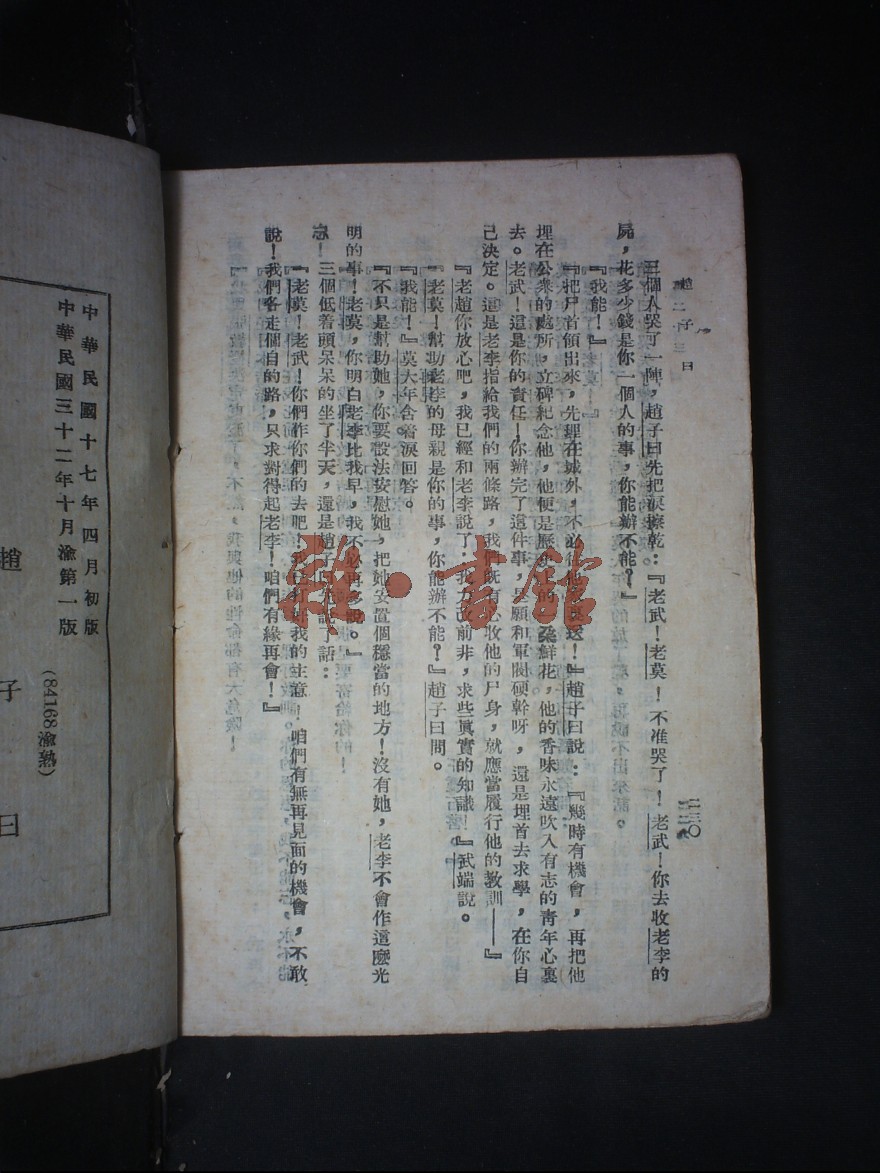 趙子曰
二三〇
三個人哭了一陣，趙子曰先把淚擦乾：『老武！老莫！不准哭了！老武！你去收老李的
屍，花多少錢是你一個人的事，你能辦不能？』
『我能！』
『把尸首領出來，先埋在城外，不必往他家裏送！』趙子曰說：『幾時有機會，再把他
埋在公衆的處所，立碑紀念他，他便是歷史上的一朵鮮花，他的香味永遠吹入有志的青年心裏
去。老武！這是你的責任！你辦完了這件事，是願和軍閥硬幹呀，還是埋首去求學，在你自
己決定。這是老李指給我們的兩條路，我們旣有心收他的尸身，就應當履行他的敎訓——』
『老趙你放心吧，我已經和老李說了：我力改前非，求些眞實的知識！』武端說。
『老莫！幫助老李的母親是你的事，你能辦不能？』趙子曰問。
『我能！』莫大年含着淚回答。
『不只是幫助她，你要設法安慰她，把她安置個穩當的地方！沒有她，老李不會作這麼光
明的事！老莫，你明白老李比我早，我不必再多說。』
三個低着頭呆呆的坐了半天，還是趙子曰先說了話：
『老莫！老武！你們作你們的去吧！我已打好我的主意！咱們有無再見面的機會，不敢
說！我們各走個自的路，只求對得起老李！咱們有緣再會！』
中華民國十七年四月初版
中華民國三十二年十月渝第一版
(84168渝熟)
趙子曰
雅·書館